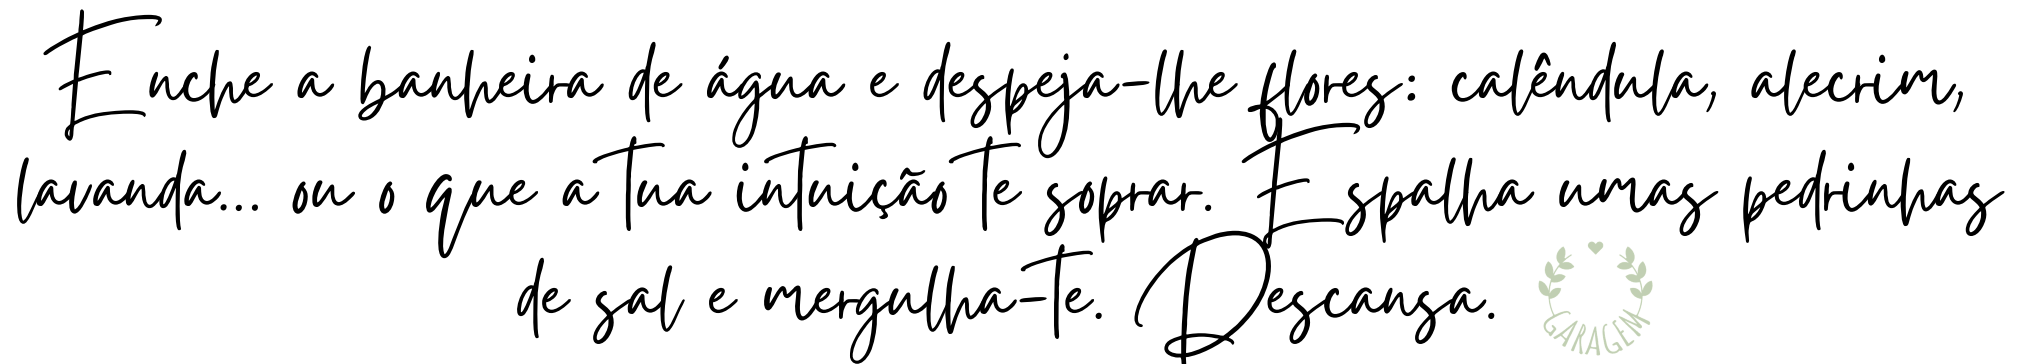 Enche a banheira de água e despeja-lhe flores: calêndula, alecrim,
lavanda... ou o que a tua intuição te soprar. Espalha umas pedrinhas
de sal e mergulha-te. Descansa.
GARAGEM